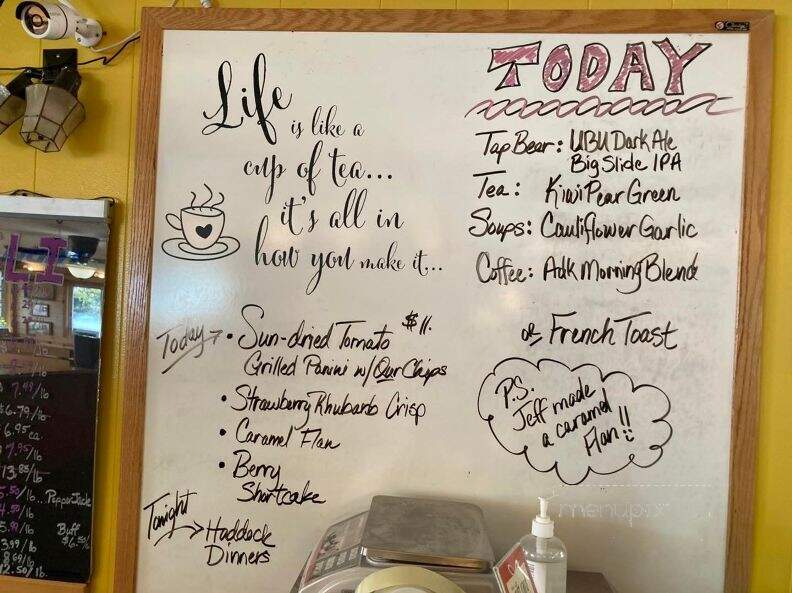 Life
is like a
cup of tea...
it's all in
how you make it...
TODAY
Tap Bear: UBU Dark Ale
Big Slide IPA
Tea: Kiwi Pear Green
Soups: Cauliflower Garlic
Coffee: Adk Morning Blend
or French Toast
P.S.
Jeff made
a caramel
Flan!!
Today → • Sun-dried Tomato $11.
Grilled Panini w/ Our Chips
• Strawberry Rhubarb Crisp
• Caramel Flan
• Berry
Shortcake
Tonight → Haddock
Dinners
LI
7.99/lb
6.79/lb
6.95 ea.
7.95/lb
13.85/lb
5.50/lb...Pepper Jack
4.50/lb
5.99/lb Buff
3.99/lb $6.50/lb
8.69/lb
12.50/lb.
menupix